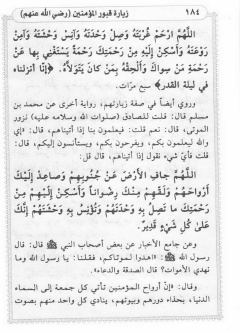 ١٨٤
زيارة قبور المؤمنين (رضي الله عنهم)
اللَّهُمَّ ارْحَمْ غُرْبَتَهُ وَصِلْ وَحْدَتَهُ وَآنِسْ وَحْشَتَهُ وَآمِنْ
رَوْعَتَهُ وَأَسْكِنْ إِلَيْهِ مِنْ رَحْمَتِكَ رَحْمَةً يَسْتَغْنِي بِها عَنْ
رَحْمَةِ مَنْ سِواكَ وَأَلْحِقْهُ بِمَنْ كانَ يَتَوَلَّاهُ. ﴿إِنَّا أَنْزَلْناه
في ليلة القدر﴾ سبع مرّات.
وروي أيضاً في صفة زيارتهم، رواية أخرى عن محمد بن
مسلم قال: قلت للصادق (صلوات الله وسلامه عليه) نزور
الموتى، قال: نعم قلت: فيعلمون بنا إذا أتيناهم، قال: إي
والله ليعلمون بكم، ويفرحون بكم، ويستأنسون إليكم، قال:
قلت فأيّ شيء نقول إذا أتيناهم، قال قل:
اللَّهُمَّ جافِ الأَرْضَ عَنْ جُنُوبِهِمْ وَصاعِدْ إِلَيْكَ
أَرْواحَهُمْ وَلَقِّهِمْ مِنْكَ رِضْواناً وَأَسْكِنْ إِلَيْهِمْ مِنْ
رَحْمَتِكَ ما تَصِلُ بِهِ وَحْدَتَهُمْ وَتُؤْنِسُ بِهِ وَحْشَتَهُمْ إِنَّكَ
عَلَى كُلِّ شَيْءٍ قَدِيرٌ.
وعن جامع الأخبار عن بعض أصحاب النبي ﷺ قال: قال
رسول الله ﷺ: «اهدوا لموتاكم، فقلنا: يا رسول الله وما
نهدي الأموات؟ قال الصدقة والدعاء».
وقال: «إنّ أرواح المؤمنين تأتي كل جمعة إلى السماء
الدنيا، بحذاء دورهم وبيوتهم، ينادي كل واحد منهم بصوت